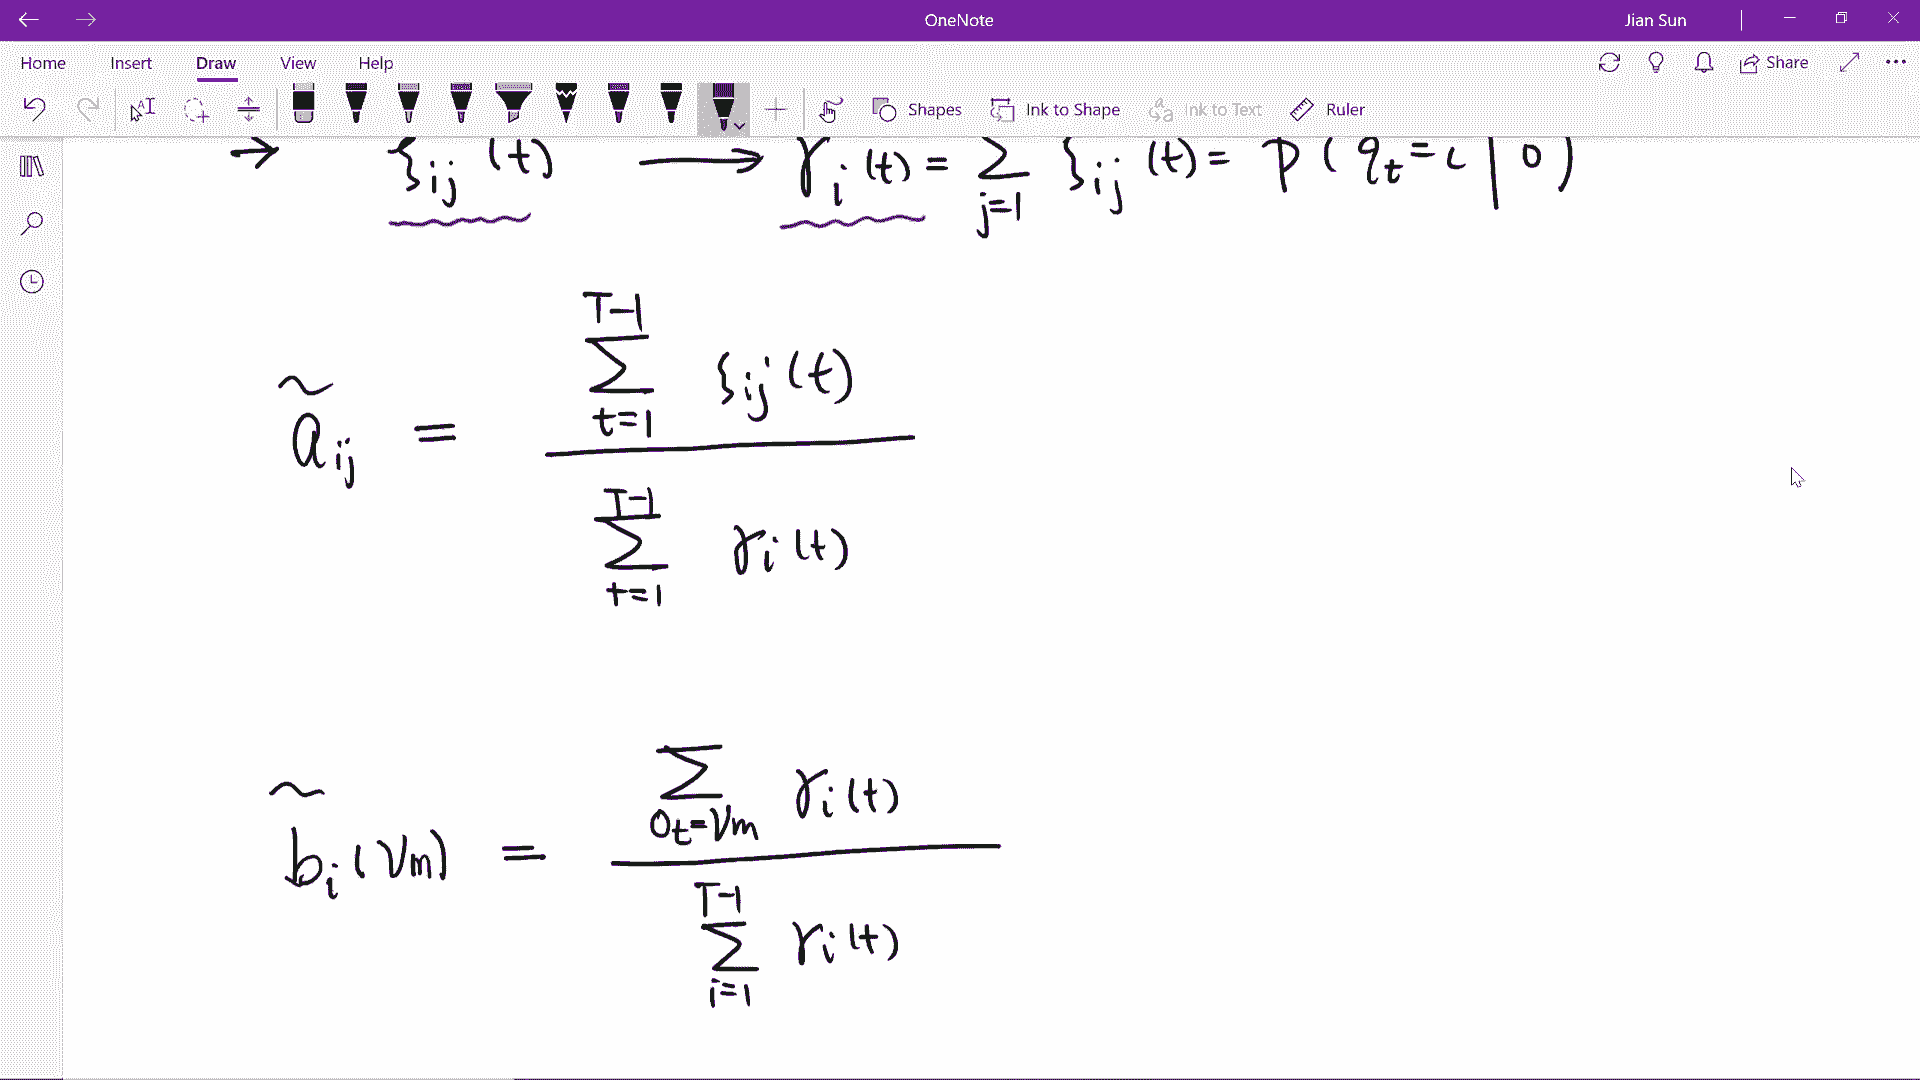 OneNote
Jian Sun
Home Insert Draw View Help
Share
Shapes Ink to Shape Ink to Text Ruler
→ ξij (t) → γi (t) = ∑ j=1 ξij (t) = P ( qt = i | O )
T-1
∑ ξij (t)
t=1
ãij =
T-1
∑ γi (t)
t=1
∑ γi (t)
Ot=Vm
b̃i (Vm) =
T-1
∑ γi (t)
i=1